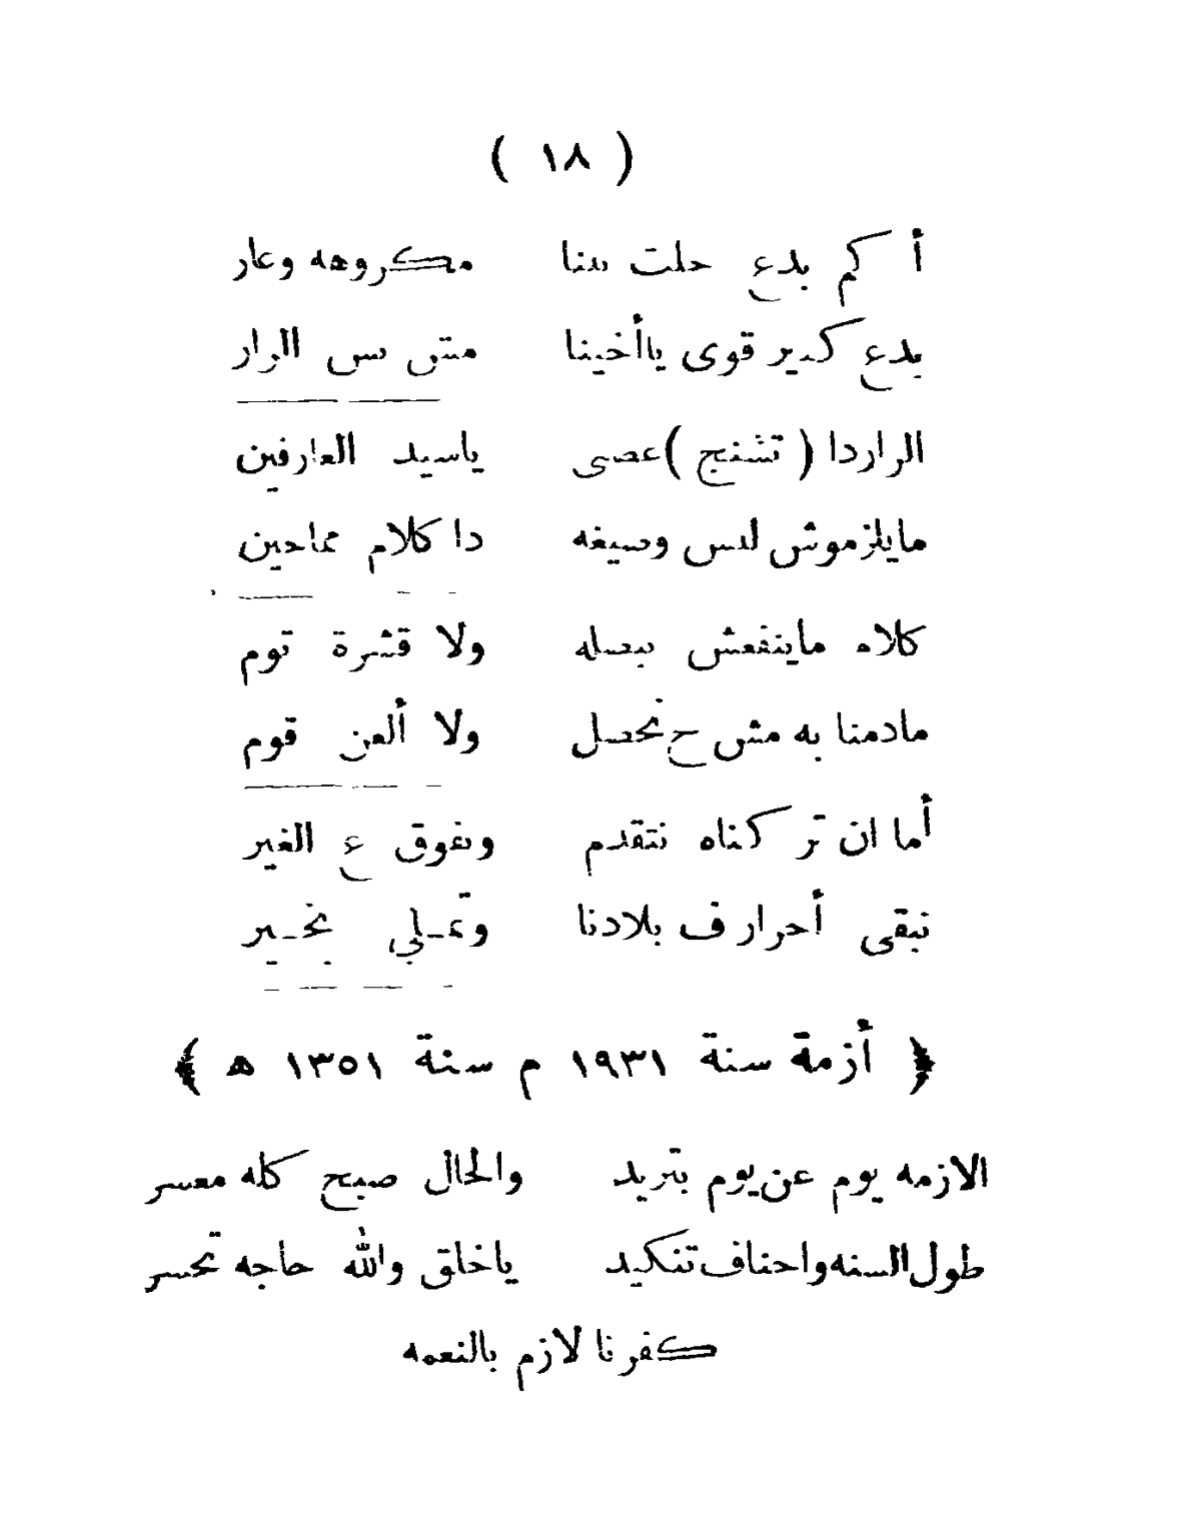 ( ١٨ )
أ كم بدع حلت بينا مكروهه وعار
بدع كتير قوى ياأخينا مش بس الزار
الزاردا ( تشنج ) عصبى ياسيد العارفين
مايلزموش لبس وصيغه دا كلام مماحين
كلام ماينفعش ببصله ولا قشرة توم
مادمنا به مش ح نحصل ولا ألعن قوم
أما ان تركناه نتقدم ونفوق ع الغير
نبقى أحرار ف بلادنا وتملي بخير
﴿ أزمة سنة ١٩٣١ م سنة ١٣٥١ ه ﴾
الازمه يوم عن يوم بتزيد والحال صبح كله معسر
طول السنه واحناف تنكيد ياخلق والله حاجه تحسر
كفرنا لازم بالنعمه